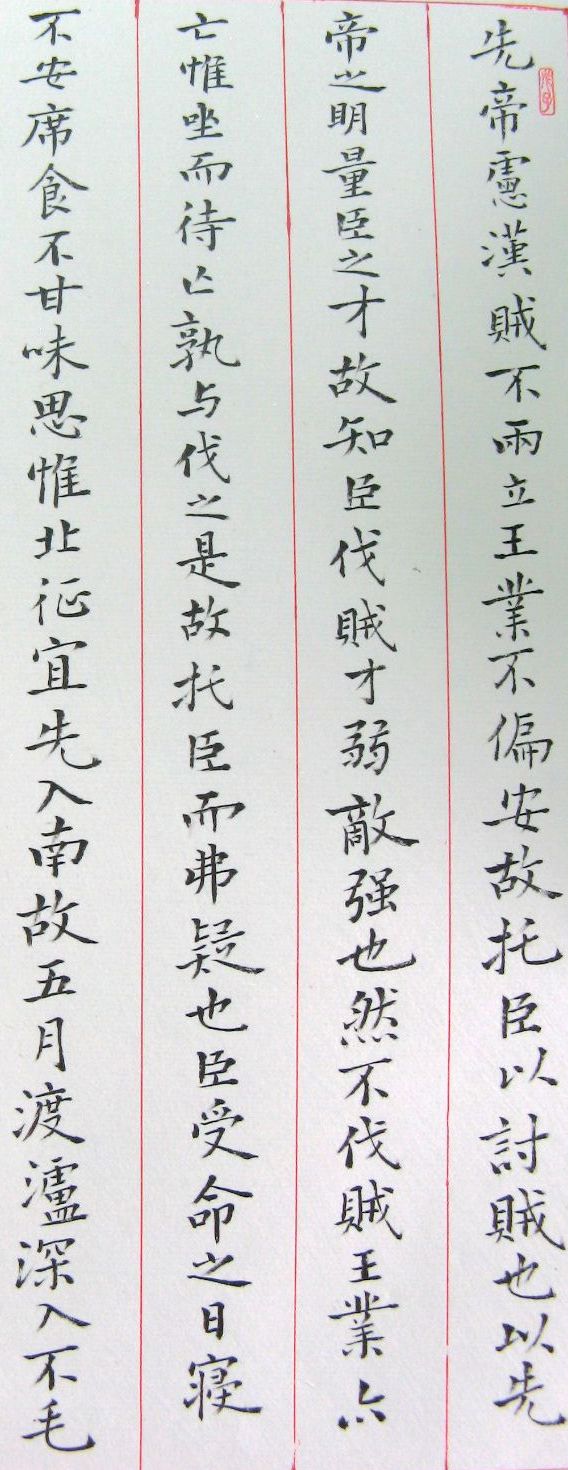 先帝慮漢賊不兩立王業不偏安故托臣以討賊也以先
帝之明量臣之才故知臣伐賊才弱敵强也然不伐賊王業亦
亡惟坐而待亡孰与伐之是故托臣而弗疑也臣受命之日寢
不安席食不甘味思惟北征宜先入南故五月渡瀘深入不毛